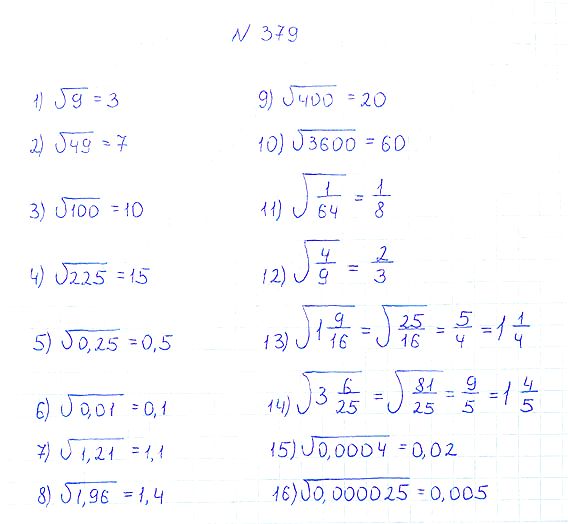 N 379
1) √9 = 3
2) √49 = 7
3) √100 = 10
4) √225 = 15
5) √0,25 = 0,5
6) √0,01 = 0,1
7) √1,21 = 1,1
8) √1,96 = 1,4
9) √400 = 20
10) √3600 = 60
11) √1/64 = 1/8
12) √4/9 = 2/3
13) √1 9/16 = √25/16 = 5/4 = 1 1/4
14) √3 6/25 = √81/25 = 9/5 = 1 4/5
15) √0,0004 = 0,02
16) √0,000025 = 0,005